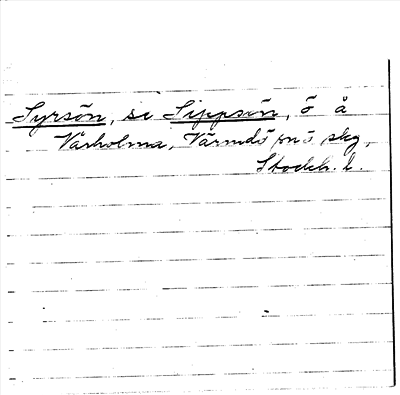 Syrsön, se Sippsön, ö å
Vårholma, Värmdö sn o. skg,
Stockh. l.